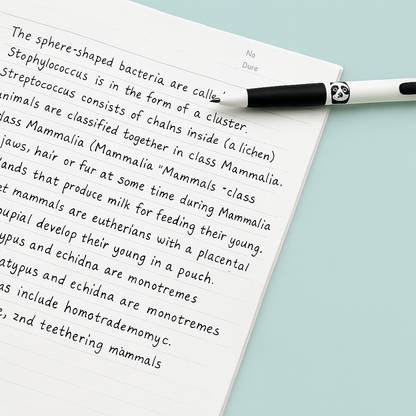 No
Dure:
The sphere-shaped bacteria are calle
Stophylococcus is in the form of a cluster.
Streptococcus consists of chalns inside (a lichen)
animals are classified together in class Mammalia.
lass Mammalia (Mammalia "Mammals -class
jaws, hair or fur at some time during Mammalia
lands that produce milk for feeding their young.
et mammals are eutherians with a placental
oupial develop their young in a pouch.
ypus and echidna are monotremes
atypus and echidna are monotremes
as include homotrademomyc.
e, 2nd teethering mammals